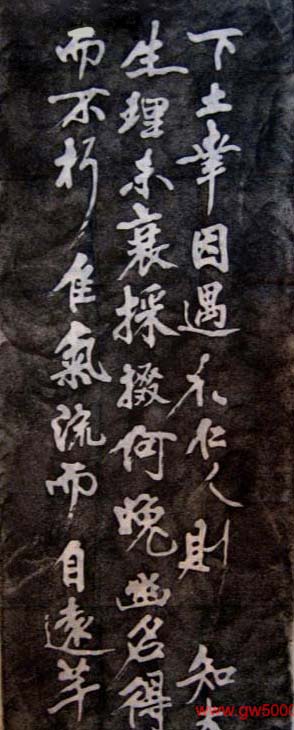 下土幸因遇禾仁人則 知
生理未衰採掇何晚幽名得
而不朽佳氣流而自遠羊
www.gw500